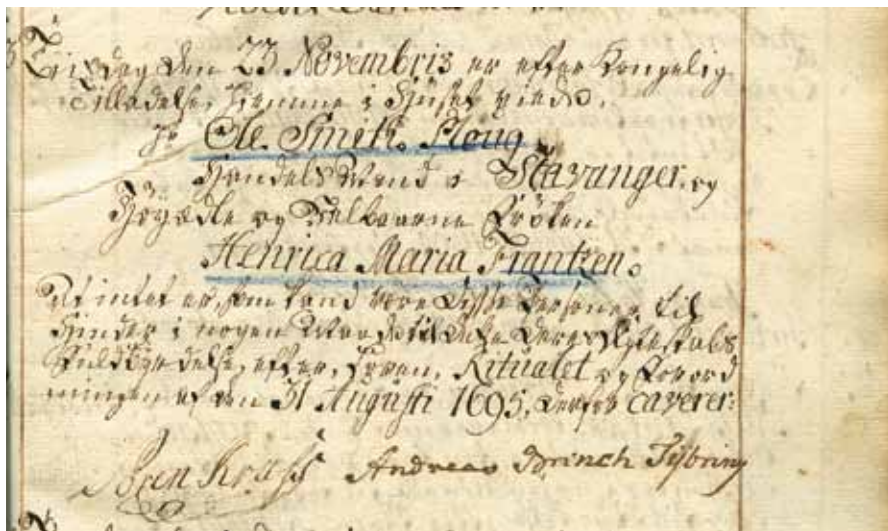 Tiisdag den 23 Novembris er efter Kongelig
Tilladelse, hiemme i Huuset viede,
Hr Ole Smith Ploug
Handels Mand i Stavanger, og
Høyædle og Velbaarne Frøken
Henrica Maria Frantzen.
At intet er, som kand være disse Personer til
Hinder i nogen Maade til dette deres Egteskabs
Fuldbyrdelse, efter Loven, Ritualet og Forord
ningen af den 31 Augusti 1695, derfor caverer:
Andreas Brinch